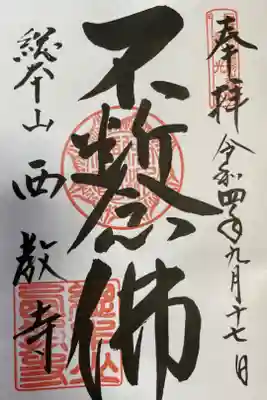 奉拝 令和四年九月十七日
不断念佛
総本山 西教寺